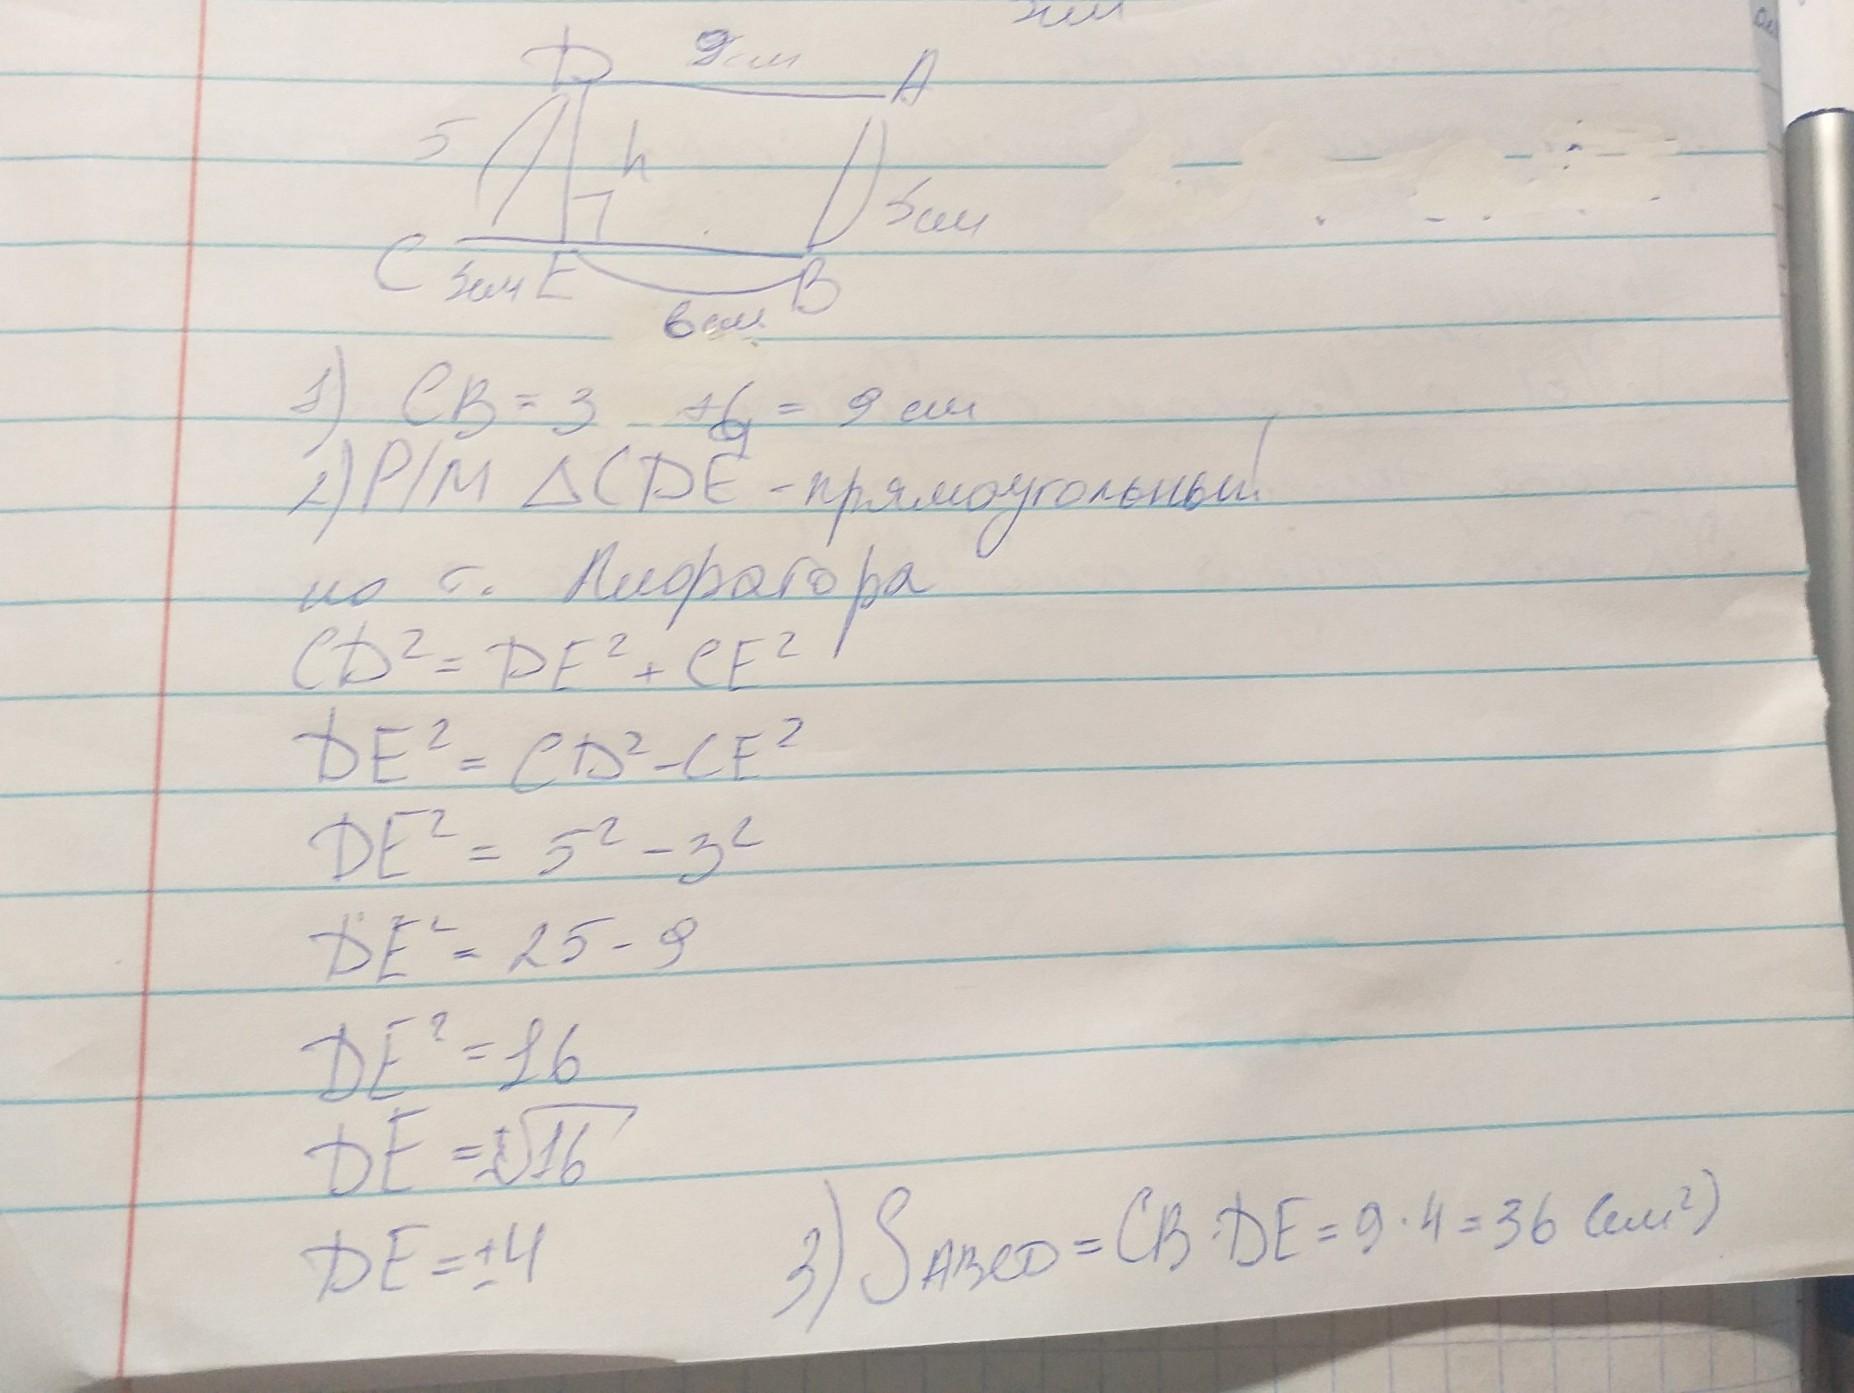 D 9см A
5 h 5см
C 3см E B
6см
1) CB = 3 +6 = 9 см
2) Р/М △CDE - прямоугольный
по т. Пифагора
CD² = DE² + CE²
DE² = CD² - CE²
DE² = 5² - 3²
DE² = 25 - 9
DE² = 16
DE = ±√16
DE = ±4
3) SABCD = CB · DE = 9 · 4 = 36 (см²)